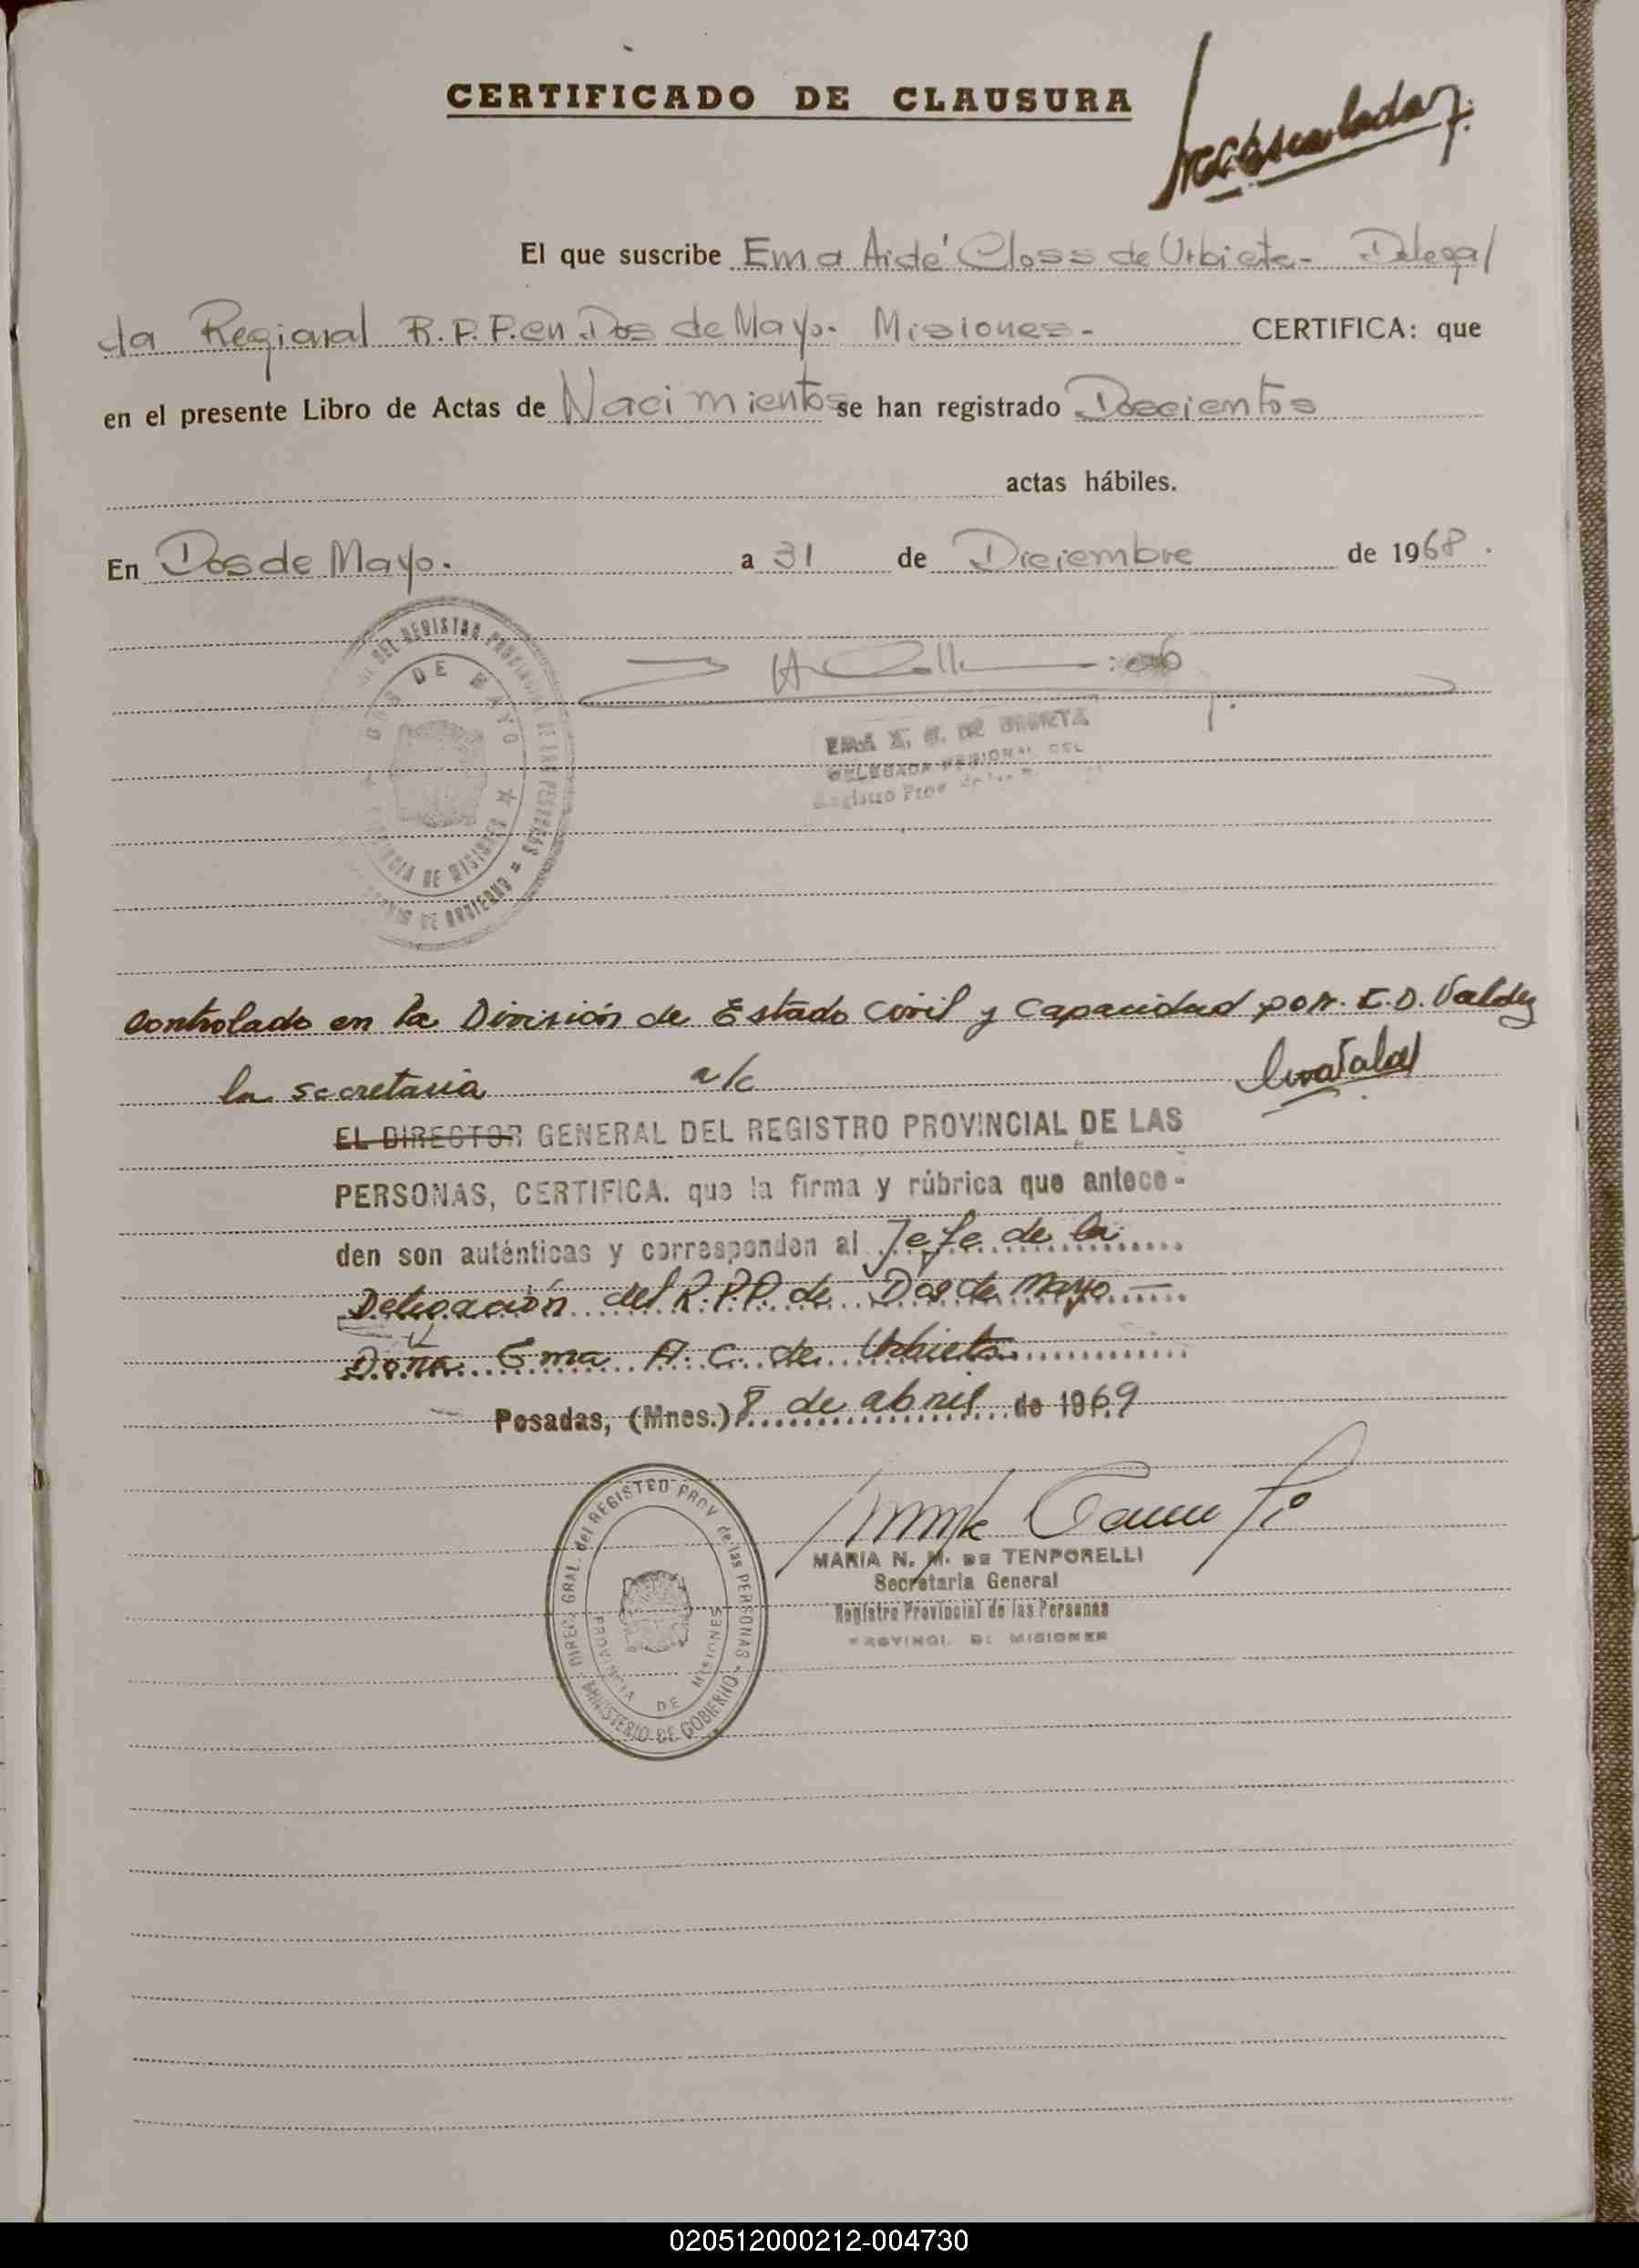 CERTIFICADO DE CLAUSURA
El que suscribe Ema Aidé Closs de Urbieta.- Delega/
da Regional R.P.P. en Dos de Mayo. Misiones.- CERTIFICA: que
en el presente Libro de Actas de Nacimientos se han registrado Doscientos
actas hábiles.
En Dos de Mayo. a 31 de Diciembre de 1968.
DEL REGISTRO PROVINCIAL DE LAS PERSONAS
DOS DE MAYO
PROVINCIA DE MISIONES
MINISTERIO DE GOBIERNO
EMA A. C. DE URBIETA
DELEGADA REGIONAL DEL
Registro Prov. de las
Controlado en la División de Estado Civil y Capacidad por. E.D. Valdez
la secretaria a/c
EL DIRECTOR GENERAL DEL REGISTRO PROVINCIAL DE LAS
PERSONAS, CERTIFICA. que la firma y rúbrica que antece-
den son auténticas y corresponden al Jefe de la
Delegación del R.P.P. de Dos de Mayo
Doña Ema A. C. de Urbieta
Posadas, (Mnes.) 8 de abril de 1969
DIREC. GRAL. del REGISTRO PROV. de las PERSONAS
PROVINCIA DE MISIONES
MINISTERIO DE GOBIERNO
MARIA N. M. DE TENPORELLI
Secretaria General
Registro Provincial de las Personas
PROVINCI. DE MISIONES
020512000212-004730